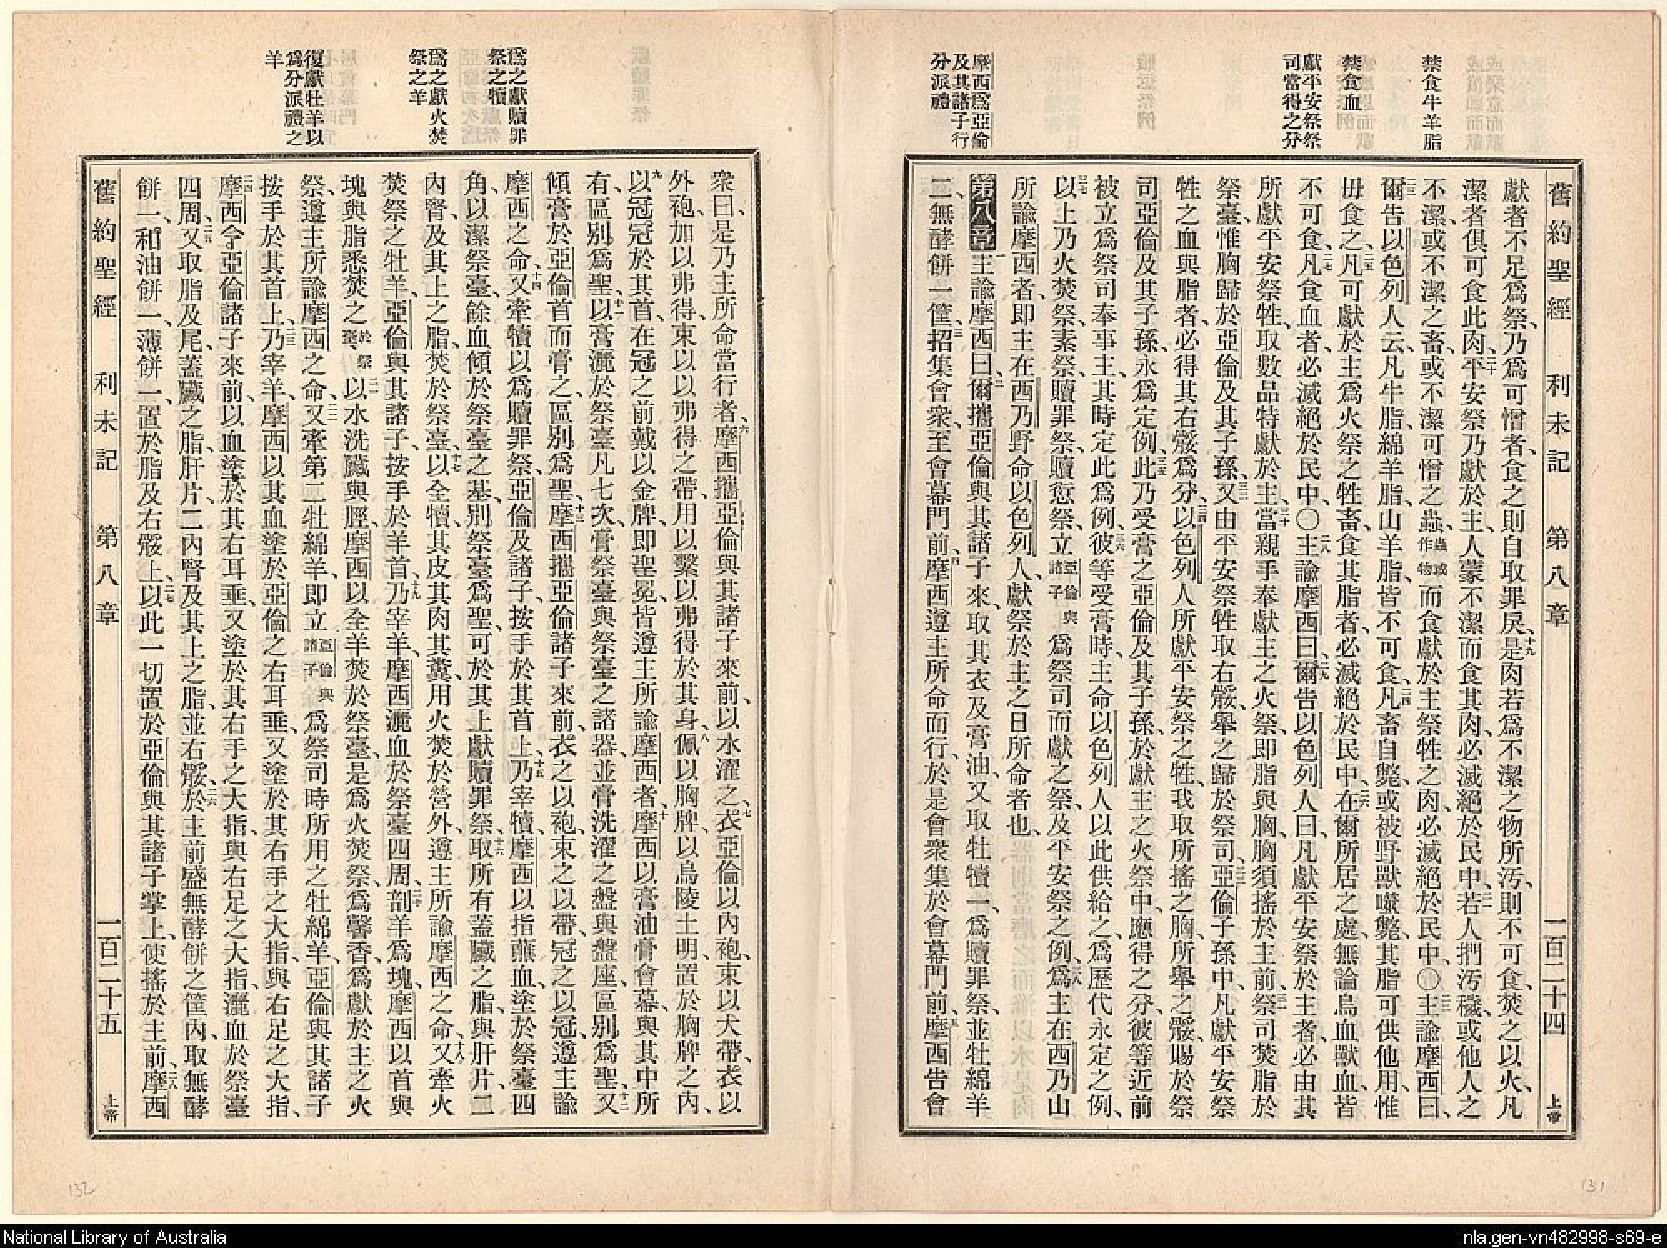 舊約聖經 利未記 第八章 一百二十四 上帝
禁食牛羊脂
禁食血
獻平安祭祭
司當得之分
摩西爲亞倫
及其諸子行
分派禮
獻者不足爲祭、乃爲可憎者、食之則自取罪戾、十九是肉若爲不潔之物所汚、則不可食、焚之以火、凡
潔者俱可食此肉、二十平安祭乃獻於主、人蒙不潔而食其肉、必滅絕於民中、二一若人捫汚穢、或他人之
不潔、或不潔之畜、或不潔可憎之蟲、蟲或作物而食獻於主祭牲之肉、必滅絕於民中、〇二二主諭摩西曰、
二三爾告以色列人云、凡牛脂、綿羊脂、山羊脂、皆不可食、二四凡畜自斃、或被野獸噬斃、其脂可供他用、惟
毋食之、二五凡可獻於主爲火祭之牲畜、食其脂者、必滅絕於民中、二六在爾所居之處、無論鳥血獸血、皆
不可食、二七凡食血者、必滅絕於民中、〇二八主諭摩西曰、二九爾告以色列人曰、凡獻平安祭於主者、必由其
所獻平安祭牲、取數品特獻於主、三十當親手奉獻主之火祭、卽脂與胸、胸須搖於主前、三一祭司焚脂於
祭臺、惟胸歸於亞倫及其子孫、三二又由平安祭牲取右骽、舉之歸於祭司、三三亞倫子孫中、凡獻平安祭
牲之血與脂者、必得其右骽爲分、三四以色列人所獻平安祭之牲、我取所搖之胸、所舉之骽、賜於祭
司亞倫及其子孫、永爲定例、三五此乃受膏之亞倫及其子孫、於獻主之火祭中、應得之分、彼等近前
被立爲祭司奉事主、其時定此爲例、三六彼等受膏時、主命以色列人以此供給之、爲歷代永定之例、
三七以上乃火焚祭、素祭、贖罪祭、贖愆祭、立亞倫與諸子爲祭司而獻之祭、及平安祭之例、三八爲主在西乃山
所諭摩西者、卽主在西乃野命以色列人獻祭於主之日所命者也、
第八章 一主諭摩西曰、二爾攜亞倫與其諸子來、取其衣及膏油、又取牡犢一、爲贖罪祭、並牡綿羊
二、無酵餅一筐、三招集會衆、至會幕門前、四摩西遵主所命而行、於是會衆集於會幕門前、五摩西告會
131
爲之獻贖罪
祭之犢
爲之獻火焚
祭之羊
復獻牡羊以
爲分派禮之
羊
衆曰、是乃主所命當行者、六摩西攜亞倫與其諸子來前、以水濯之、七衣亞倫以內袍、束以大帶、衣以
外袍、加以弗得、束以以弗得之帶、用以繫以弗得於其身、八佩以胸牌、以烏陵土明、置於胸牌之內、
九以冠冠於其首、在冠之前、戴以金牌、卽聖冕、皆遵主所諭摩西者、十摩西以膏油膏會幕、與其中所
有、區別爲聖、十一以膏灑於祭臺凡七次、膏祭臺與祭臺之諸器、並膏洗濯之盤與盤座、區別爲聖、十二又
傾膏於亞倫首而膏之、區別爲聖、十三摩西攜亞倫諸子來前、衣之以袍、束之以帶、冠之以冠、遵主諭
摩西之命、十四又牽犢以爲贖罪祭、亞倫及諸子、按手於其首上、十五乃宰犢、摩西以指蘸血、塗於祭臺四
角、以潔祭臺、餘血傾於祭臺之基、別祭臺爲聖、可於其上獻贖罪祭、十六取所有蓋臟之脂、與肝片、二
內腎、及其上之脂、焚於祭臺、十七以全犢、其皮其肉其糞、用火焚於營外、遵主所諭摩西之命、十八又牽火
焚祭之牡羊、亞倫與其諸子、按手於羊首、十九乃宰羊、摩西灑血於祭臺四周、二十剖羊爲塊、摩西以首與
塊與脂悉焚之、焚於祭臺二一以水洗臟與脛、摩西以全羊焚於祭臺、是爲火焚祭、爲馨香爲獻於主之火
祭、遵主所諭摩西之命、二二又牽第二牡綿羊、卽立亞倫與諸子爲祭司時所用之牡綿羊、亞倫與其諸子
按手於其首上、二三乃宰羊、摩西以其血塗於亞倫之右耳垂、又塗於其右手之大指、與右足之大指、
二四摩西令亞倫諸子來前、以血塗於其右耳垂、又塗於其右手之大指、與右足之大指、灑血於祭臺
四周、二五又取脂及尾、蓋臟之脂、肝片、二內腎及其上之脂、並右骽、二六於主前盛無酵餅之筐內、取無酵
餅一、和油餅一、薄餅一、置於脂及右骽上、二七以此一切置於亞倫與其諸子掌上、使搖於主前、二八摩西
舊約聖經 利未記 第八章 一百二十五 上帝
132
National Library of Australia
nla.gen-vn482998-s69-e